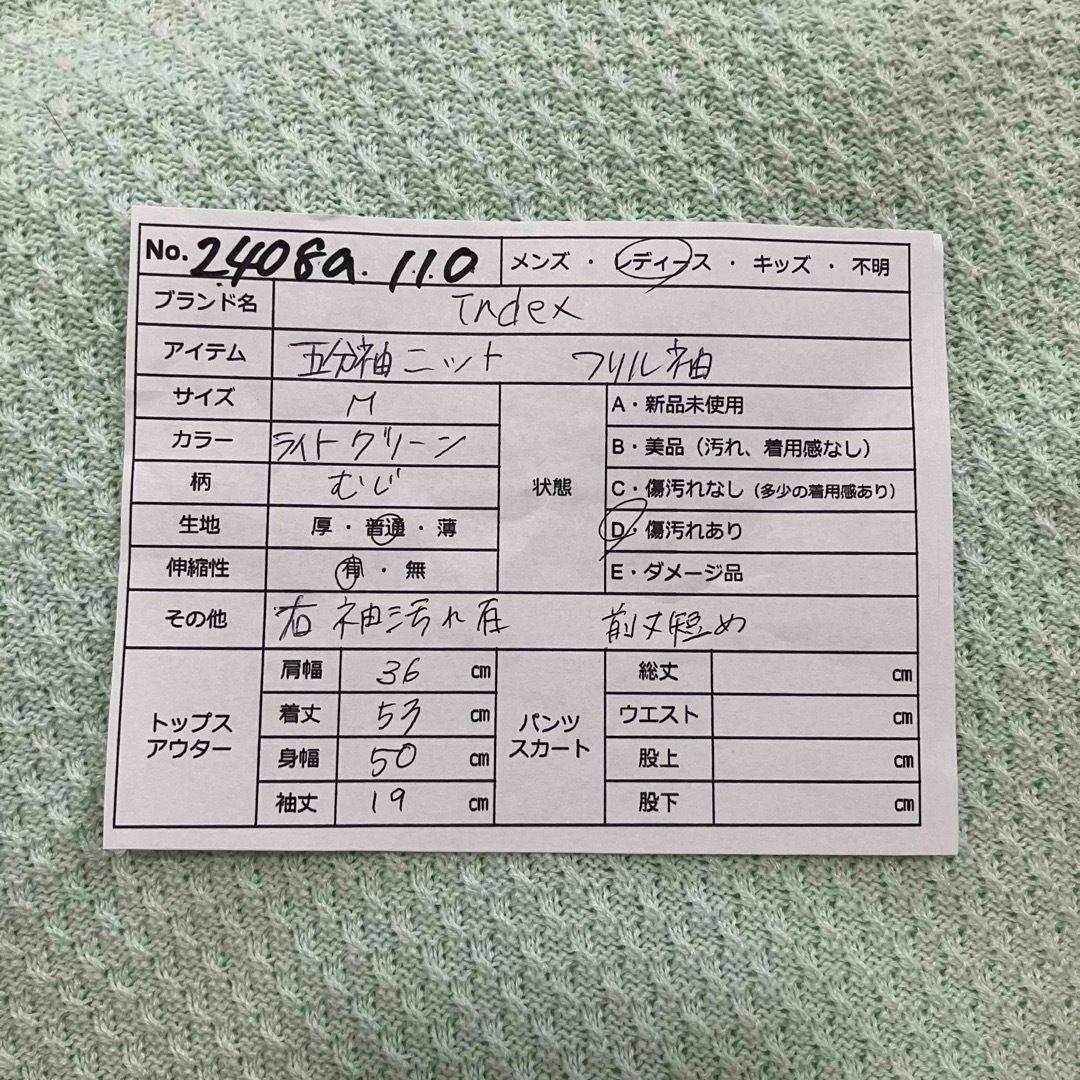 No. 2408a.110 メンズ ・ レディース ・ キッズ ・ 不明
ブランド名 Index
アイテム 五分袖ニット フリル袖
サイズ M
カラー ライトグリーン
柄 むじ
生地 厚 ・ 普通 ・ 薄
伸縮性 有 ・ 無
状態
A・新品未使用
B・美品（汚れ、着用感なし）
C・傷汚れなし（多少の着用感あり）
D・傷汚れあり
E・ダメージ品
その他 右袖汚れ有 前丈短め
トップス
アウター
肩幅 36 cm
着丈 53 cm
身幅 50 cm
袖丈 19 cm
パンツ
スカート
総丈 cm
ウエスト cm
股上 cm
股下 cm